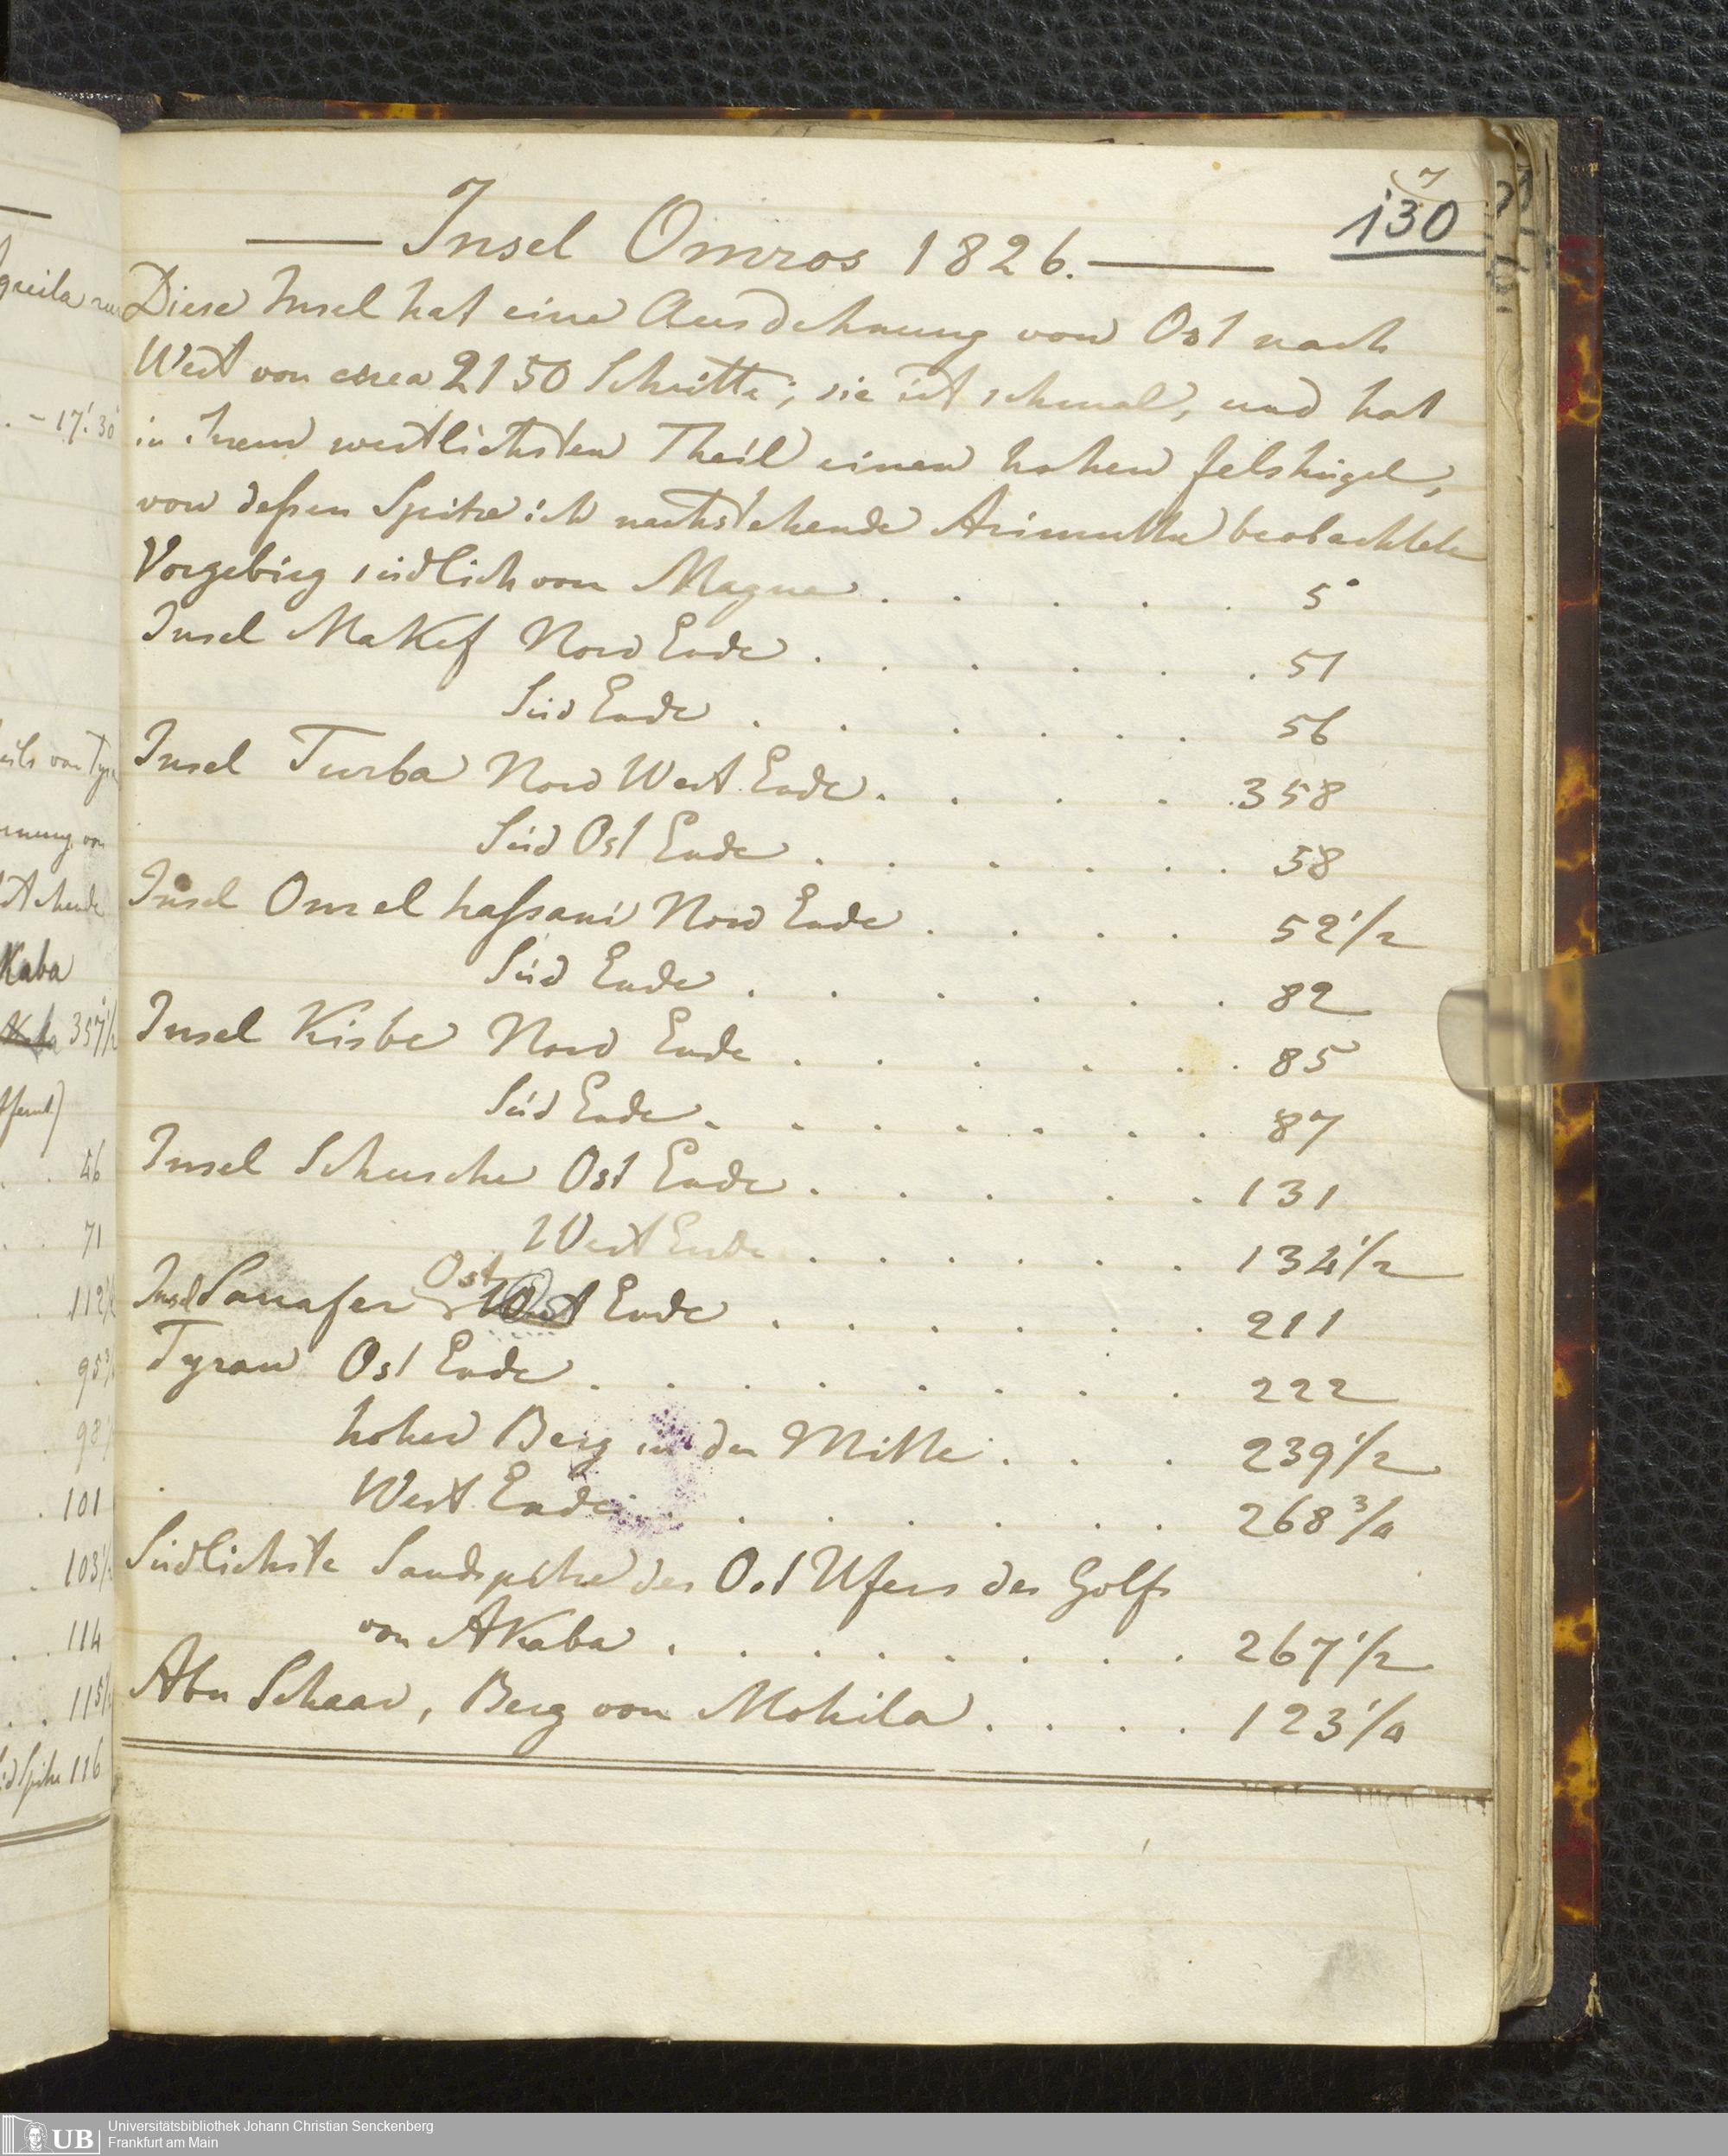 7
130
Insel Omros 1826.
Diese Insel hat eine Ausdehnung von Ost nach
West von circa 2150 Schritte; sie ist schmal, und hat
in ihrem westlichsten Theil einen hohen Felshügel,
von deßen Spitze ich nachstehende Azimutte beobachtete
Vorgebirg südlich von Magna . . . . . 5°
Insel Makef Nord Ende . . . . . 51
Süd Ende . . . . . . 56
Insel Turba Nord West Ende . . . . . 358
Süd Ost Ende . . . . . . 58
Insel Om el haßani Nord Ende . . . . 52 1/2
Süd Ende . . . . . . 82
Insel Kisbe Nord Ende . . . . . . 85
Süd Ende . . . . . . . 87
Insel Schusche Ost Ende . . . . . 131
West Ende . . . . . . 134 1/2
Insel Sanafer Ost West Ende . . . . . . 211
Tyran Ost Ende . . . . . . . . 222
hoher Berg in der Mitte . . . 239 1/2
West Ende . . . . . . . 268 3/4
Südlichste Sandspitze des Ost Ufers des Golfs
von Akaba . . . . . . . . 267 1/2
Abu Schaar, Berg von Mohila . . . . 123 1/4
- 17' 30"
Kaba
357 1/2
46
71
101
114
116
UB
Universitätsbibliothek Johann Christian Senckenberg
Frankfurt am Main